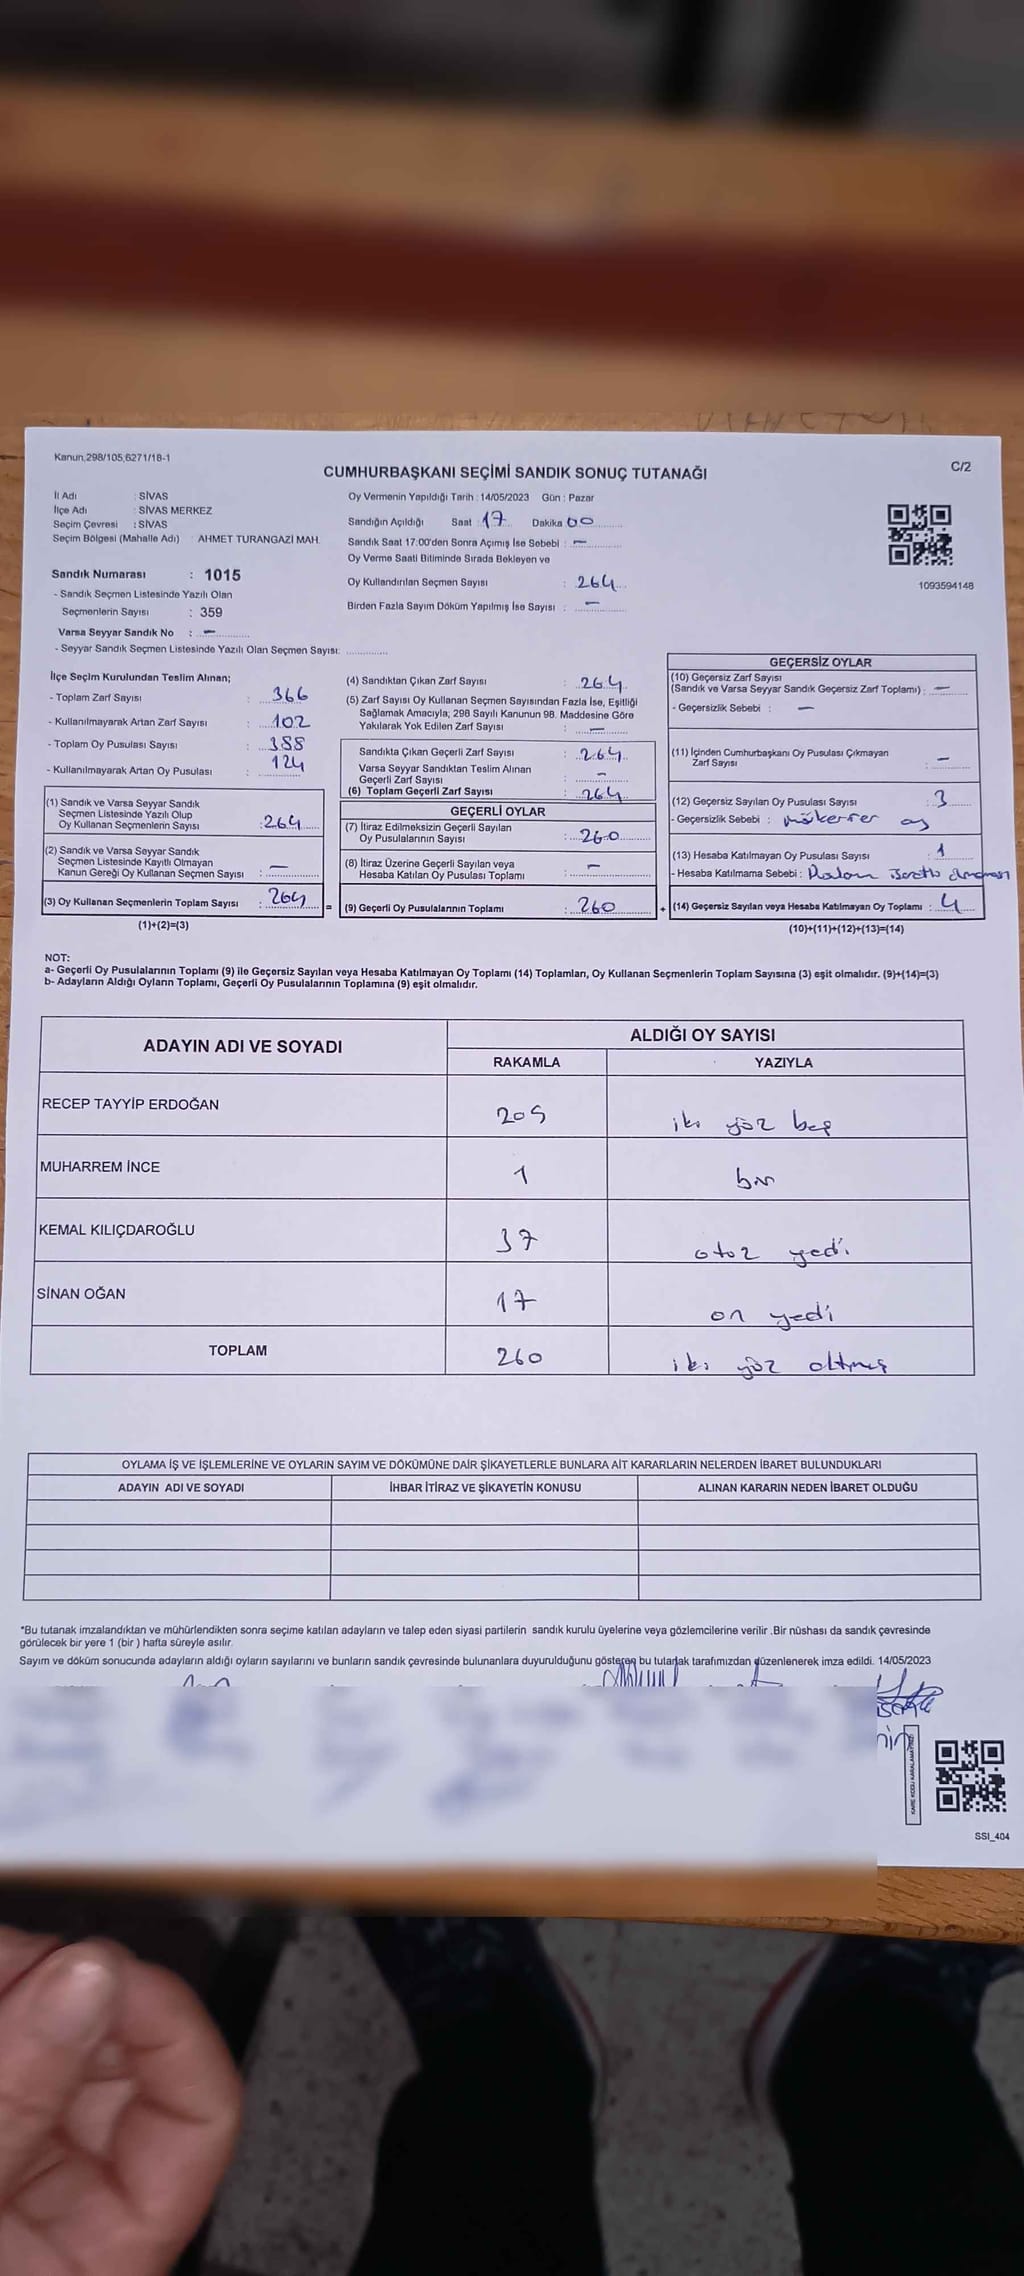 Kanun 298/105,6271/18-1
C/2
CUMHURBAŞKANI SEÇİMİ SANDIK SONUÇ TUTANAĞI
İl Adı : SİVAS
İlçe Adı : SİVAS MERKEZ
Seçim Çevresi : SİVAS
Seçim Bölgesi (Mahalle Adı) : AHMET TURANGAZİ MAH.
Sandık Numarası : 1015
- Sandık Seçmen Listesinde Yazılı Olan
Seçmenlerin Sayısı : 359
Varsa Seyyar Sandık No : -
- Seyyar Sandık Seçmen Listesinde Yazılı Olan Seçmen Sayısı:
Oy Vermenin Yapıldığı Tarih : 14/05/2023 Gün : Pazar
Sandığın Açıldığı Saat 17 Dakika 00
Sandık Saat 17:00'den Sonra Açımış İse Sebebi : -
Oy Verme Saati Bitiminde Sırada Bekleyen ve
Oy Kullandırılan Seçmen Sayısı : 264
Birden Fazla Sayım Döküm Yapılmış İse Sayısı : -
1093594148
İlçe Seçim Kurulundan Teslim Alınan;
- Toplam Zarf Sayısı : 366
- Kullanılmayarak Artan Zarf Sayısı : 102
- Toplam Oy Pusulası Sayısı : 388
- Kullanılmayarak Artan Oy Pusulası : 124
(1) Sandık ve Varsa Seyyar Sandık
Seçmen Listesinde Yazılı Olup
Oy Kullanan Seçmenlerin Sayısı : 264
(2) Sandık ve Varsa Seyyar Sandık
Seçmen Listesinde Kayıtlı Olmayan
Kanun Gereği Oy Kullanan Seçmen Sayısı : -
(3) Oy Kullanan Seçmenlerin Toplam Sayısı : 264 =
(1)+(2)=(3)
(4) Sandıktan Çıkan Zarf Sayısı : 264
(5) Zarf Sayısı Oy Kullanan Seçmen Sayısından Fazla İse, Eşitliği
Sağlamak Amacıyla, 298 Sayılı Kanunun 98. Maddesine Göre
Yakılarak Yok Edilen Zarf Sayısı : -
Sandıkta Çıkan Geçerli Zarf Sayısı : 264
Varsa Seyyar Sandıktan Teslim Alınan
Geçerli Zarf Sayısı : -
(6) Toplam Geçerli Zarf Sayısı : 264
GEÇERLİ OYLAR
(7) İtiraz Edilmeksizin Geçerli Sayılan
Oy Pusulalarının Sayısı : 260
(8) İtiraz Üzerine Geçerli Sayılan veya
Hesaba Katılan Oy Pusulası Toplamı : -
(9) Geçerli Oy Pusulalarının Toplamı : 260 +
GEÇERSİZ OYLAR
(10) Geçersiz Zarf Sayısı
(Sandık ve Varsa Seyyar Sandık Geçersiz Zarf Toplamı) : -
- Geçersizlik Sebebi : -
(11) İçinden Cumhurbaşkanı Oy Pusulası Çıkmayan
Zarf Sayısı : -
(12) Geçersiz Sayılan Oy Pusulası Sayısı : 3
- Geçersizlik Sebebi : mükerrer oy
(13) Hesaba Katılmayan Oy Pusulası Sayısı : 1
- Hesaba Katılmama Sebebi :
(14) Geçersiz Sayılan veya Hesaba Katılmayan Oy Toplamı : 4
(10)+(11)+(12)+(13)=(14)
NOT:
a- Geçerli Oy Pusulalarının Toplamı (9) ile Geçersiz Sayılan veya Hesaba Katılmayan Oy Toplamı (14) Toplamları, Oy Kullanan Seçmenlerin Toplam Sayısına (3) eşit olmalıdır. (9)+(14)=(3)
b- Adayların Aldığı Oyların Toplamı, Geçerli Oy Pusulalarının Toplamına (9) eşit olmalıdır.
ADAYIN ADI VE SOYADI ALDIĞI OY SAYISI
RAKAMLA YAZIYLA
RECEP TAYYİP ERDOĞAN 205 iki yüz beş
MUHARREM İNCE 1 bir
KEMAL KILIÇDAROĞLU 37 otuz yedi
SİNAN OĞAN 17 on yedi
TOPLAM 260 iki yüz altmış
OYLAMA İŞ VE İŞLEMLERİNE VE OYLARIN SAYIM VE DÖKÜMÜNE DAİR ŞİKAYETLERLE BUNLARA AİT KARARLARIN NELERDEN İBARET BULUNDUKLARI
ADAYIN ADI VE SOYADI İHBAR İTİRAZ VE ŞİKAYETİN KONUSU ALINAN KARARIN NEDEN İBARET OLDUĞU
*Bu tutanak imzalandıktan ve mühürlendikten sonra seçime katılan adayların ve talep eden siyasi partilerin sandık kurulu üyelerine veya gözlemcilerine verilir .Bir nüshası da sandık çevresinde
görülecek bir yere 1 (bir ) hafta süreyle asılır.
Sayım ve döküm sonucunda adayların aldığı oyların sayılarını ve bunların sandık çevresinde bulunanlara duyurulduğunu gösteren bu tutanak tarafımızdan düzenlenerek imza edildi. 14/05/2023
KARE KODU KARALAMAYINIZ!
SSI_404